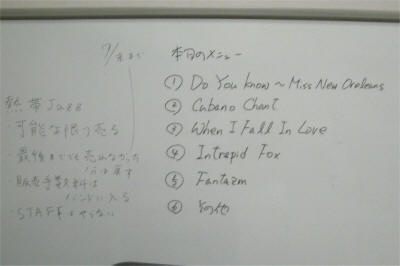 7/末まで
熱帯Jazz
・可能な限り売る
・最後までで売れなかった
分は戻す
・販売手数料は
バンドに入る
・STAFFはやらない
本日のメニュー
① Do You know ~ Miss New Orleans
② Cubano Chant
③ When I Fall In Love
④ Intrepid Fox
⑤ Fantazm
⑥ その他